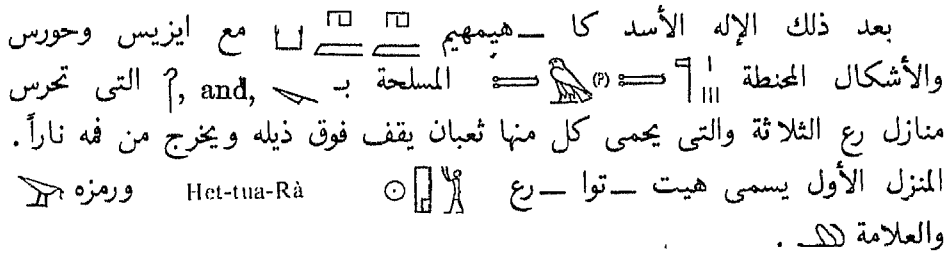 بعد ذلك الإله الأسد كا ــ هيمهيم مع ايزيس وحورس
والأشكال المحنطة (P) المسلحة بـ , and, التى تحرس
منازل رع الثلاثة والتى يحمى كل منها ثعبان يقف فوق ذيله ويخرج من فمه ناراً .
المنزل الأول يسمى هيت ــ توا ــ رع Het-tua-Rà ورمزه
والعلامة .